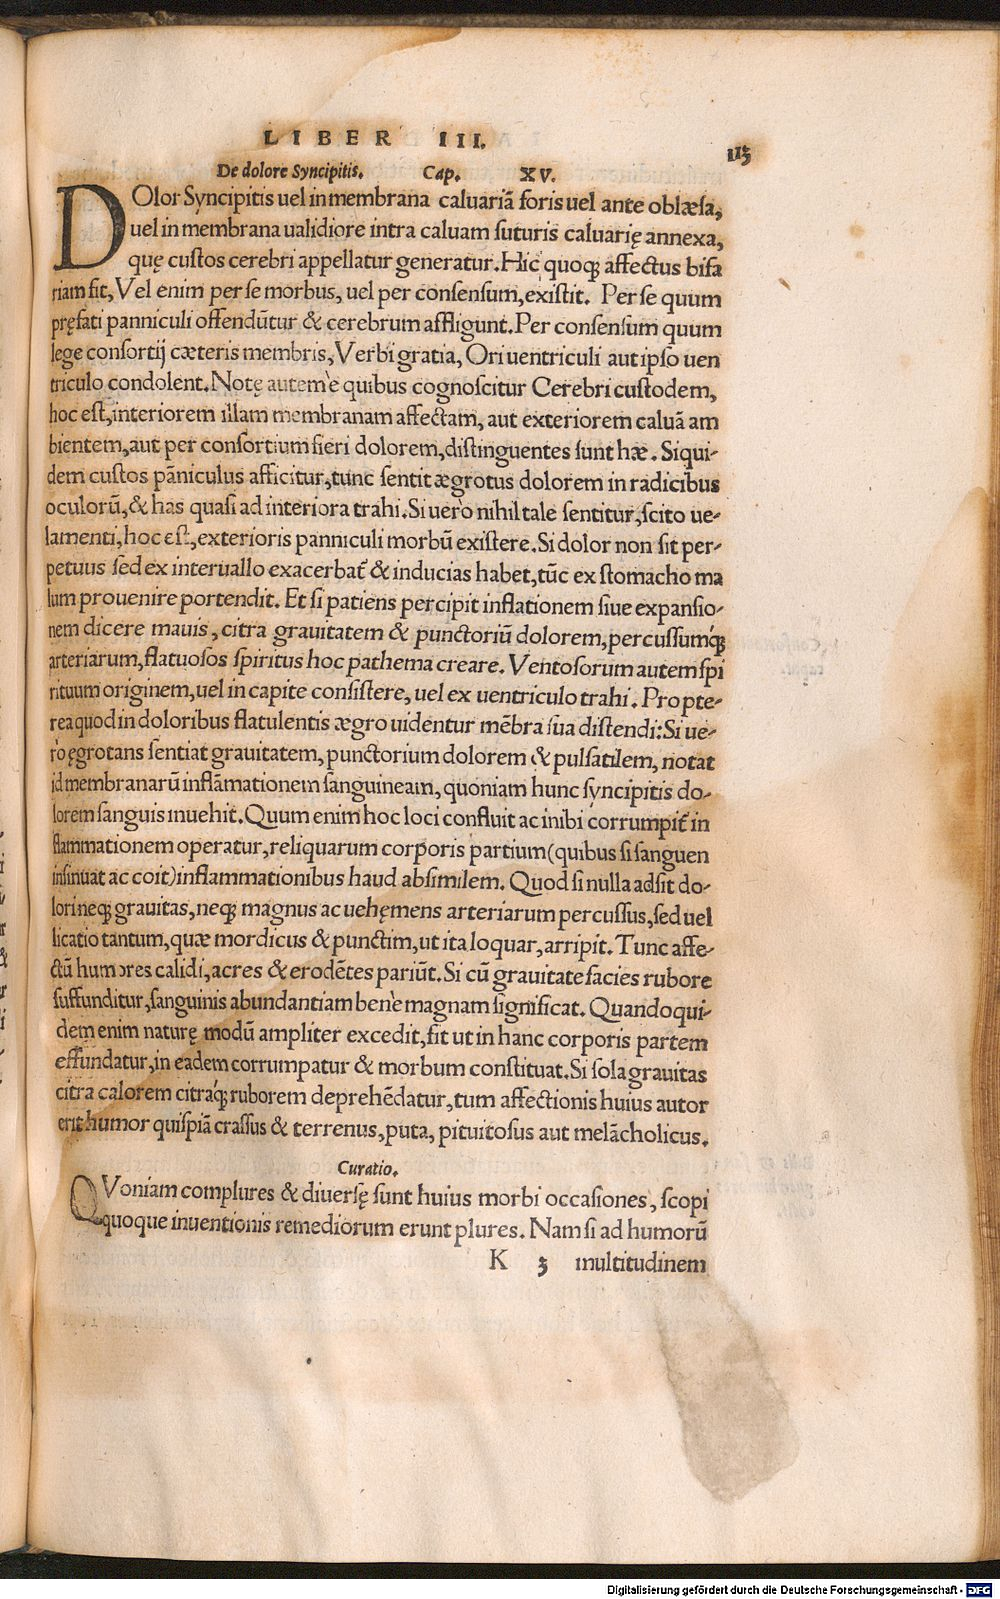 LIBER III.
113
De dolore Syncipitis. Cap. XV.
DOlor Syncipitis uel in membrana caluariã foris uel ante oblæsa,
uel in membrana ualidiore intra caluam suturis caluarię annexa,
quę custos cerebri appellatur generatur. Hic quoq; affectus bifa
riam fit, Vel enim per se morbus, uel per consensum, existit. Per se quum
pręfati panniculi offendũtur & cerebrum affligunt. Per consensum quum
lege consortij cæteris membris, Verbi gratia, Ori uentriculi aut ipso uen
triculo condolent. Notę autem è quibus cognoscitur Cerebri custodem,
hoc est, interiorem illam membranam affectam, aut exteriorem caluã am
bientem, aut per consortium fieri dolorem, distinguentes sunt hæ. Siqui-
dem custos pãniculus afficitur, tunc sentit ægrotus dolorem in radicibus
oculorũ, & has quasi ad interiora trahi. Si uerò nihil tale sentitur, scito ue-
lamenti, hoc est, exterioris panniculi morbũ existere. Si dolor non sit per-
petuus sed ex interuallo exacerbat̃ & inducias habet, tũc ex stomacho ma
lum prouenire portendit. Et si patiens percipit inflationem siue expansio-
nem dicere mauis, citra grauitatem & punctoriũ dolorem, percussumq́;
arteriarum, flatuosos spiritus hoc pathema creare. Ventosorum autem spi
rituum originem, uel in capite consistere, uel ex uentriculo trahi. Propte-
rea quod in doloribus flatulentis ægro uidentur mẽbra sua distendi: Si ue-
rò ęgrotans sentiat grauitatem, punctorium dolorem & pulsatilem, notat
id membranarũ inflãmationem sanguineam, quoniam hunc syncipitis do-
lorem sanguis inuehit. Quum enim hoc loci confluit ac inibi corrumpit̃ in
flammationem operatur, reliquarum corporis partium (quibus si sanguen
insinuat ac coit) inflammationibus haud absimilem. Quod si nulla adsit do-
lori neq; grauitas, neq; magnus ac uehęmens arteriarum percussus, sed uel
licatio tantum, quæ mordicus & punctim, ut ita loquar, arripit. Tunc affe-
ctũ humores calidi, acres & erodẽtes pariũt. Si cũ grauitate facies rubore
suffunditur, sanguinis abundantiam benè magnam significat. Quandoqui-
dem enim naturę modũ ampliter excedit, fit ut in hanc corporis partem
effundatur, in eadem corrumpatur & morbum constituat. Si sola grauitas
citra calorem citráq; ruborem deprehẽdatur, tum affectionis huius autor
erit humor quispiã crassus & terrenus, puta, pituitosus aut melãcholicus.
Curatio.
QVoniam complures & diuersę sunt huius morbi occasiones, scopi
quoque inuentionis remediorum erunt plures. Nam si ad humorũ
K 3 multitudinem
Digitalisierung gefördert durch die Deutsche Forschungsgemeinschaft - DFG